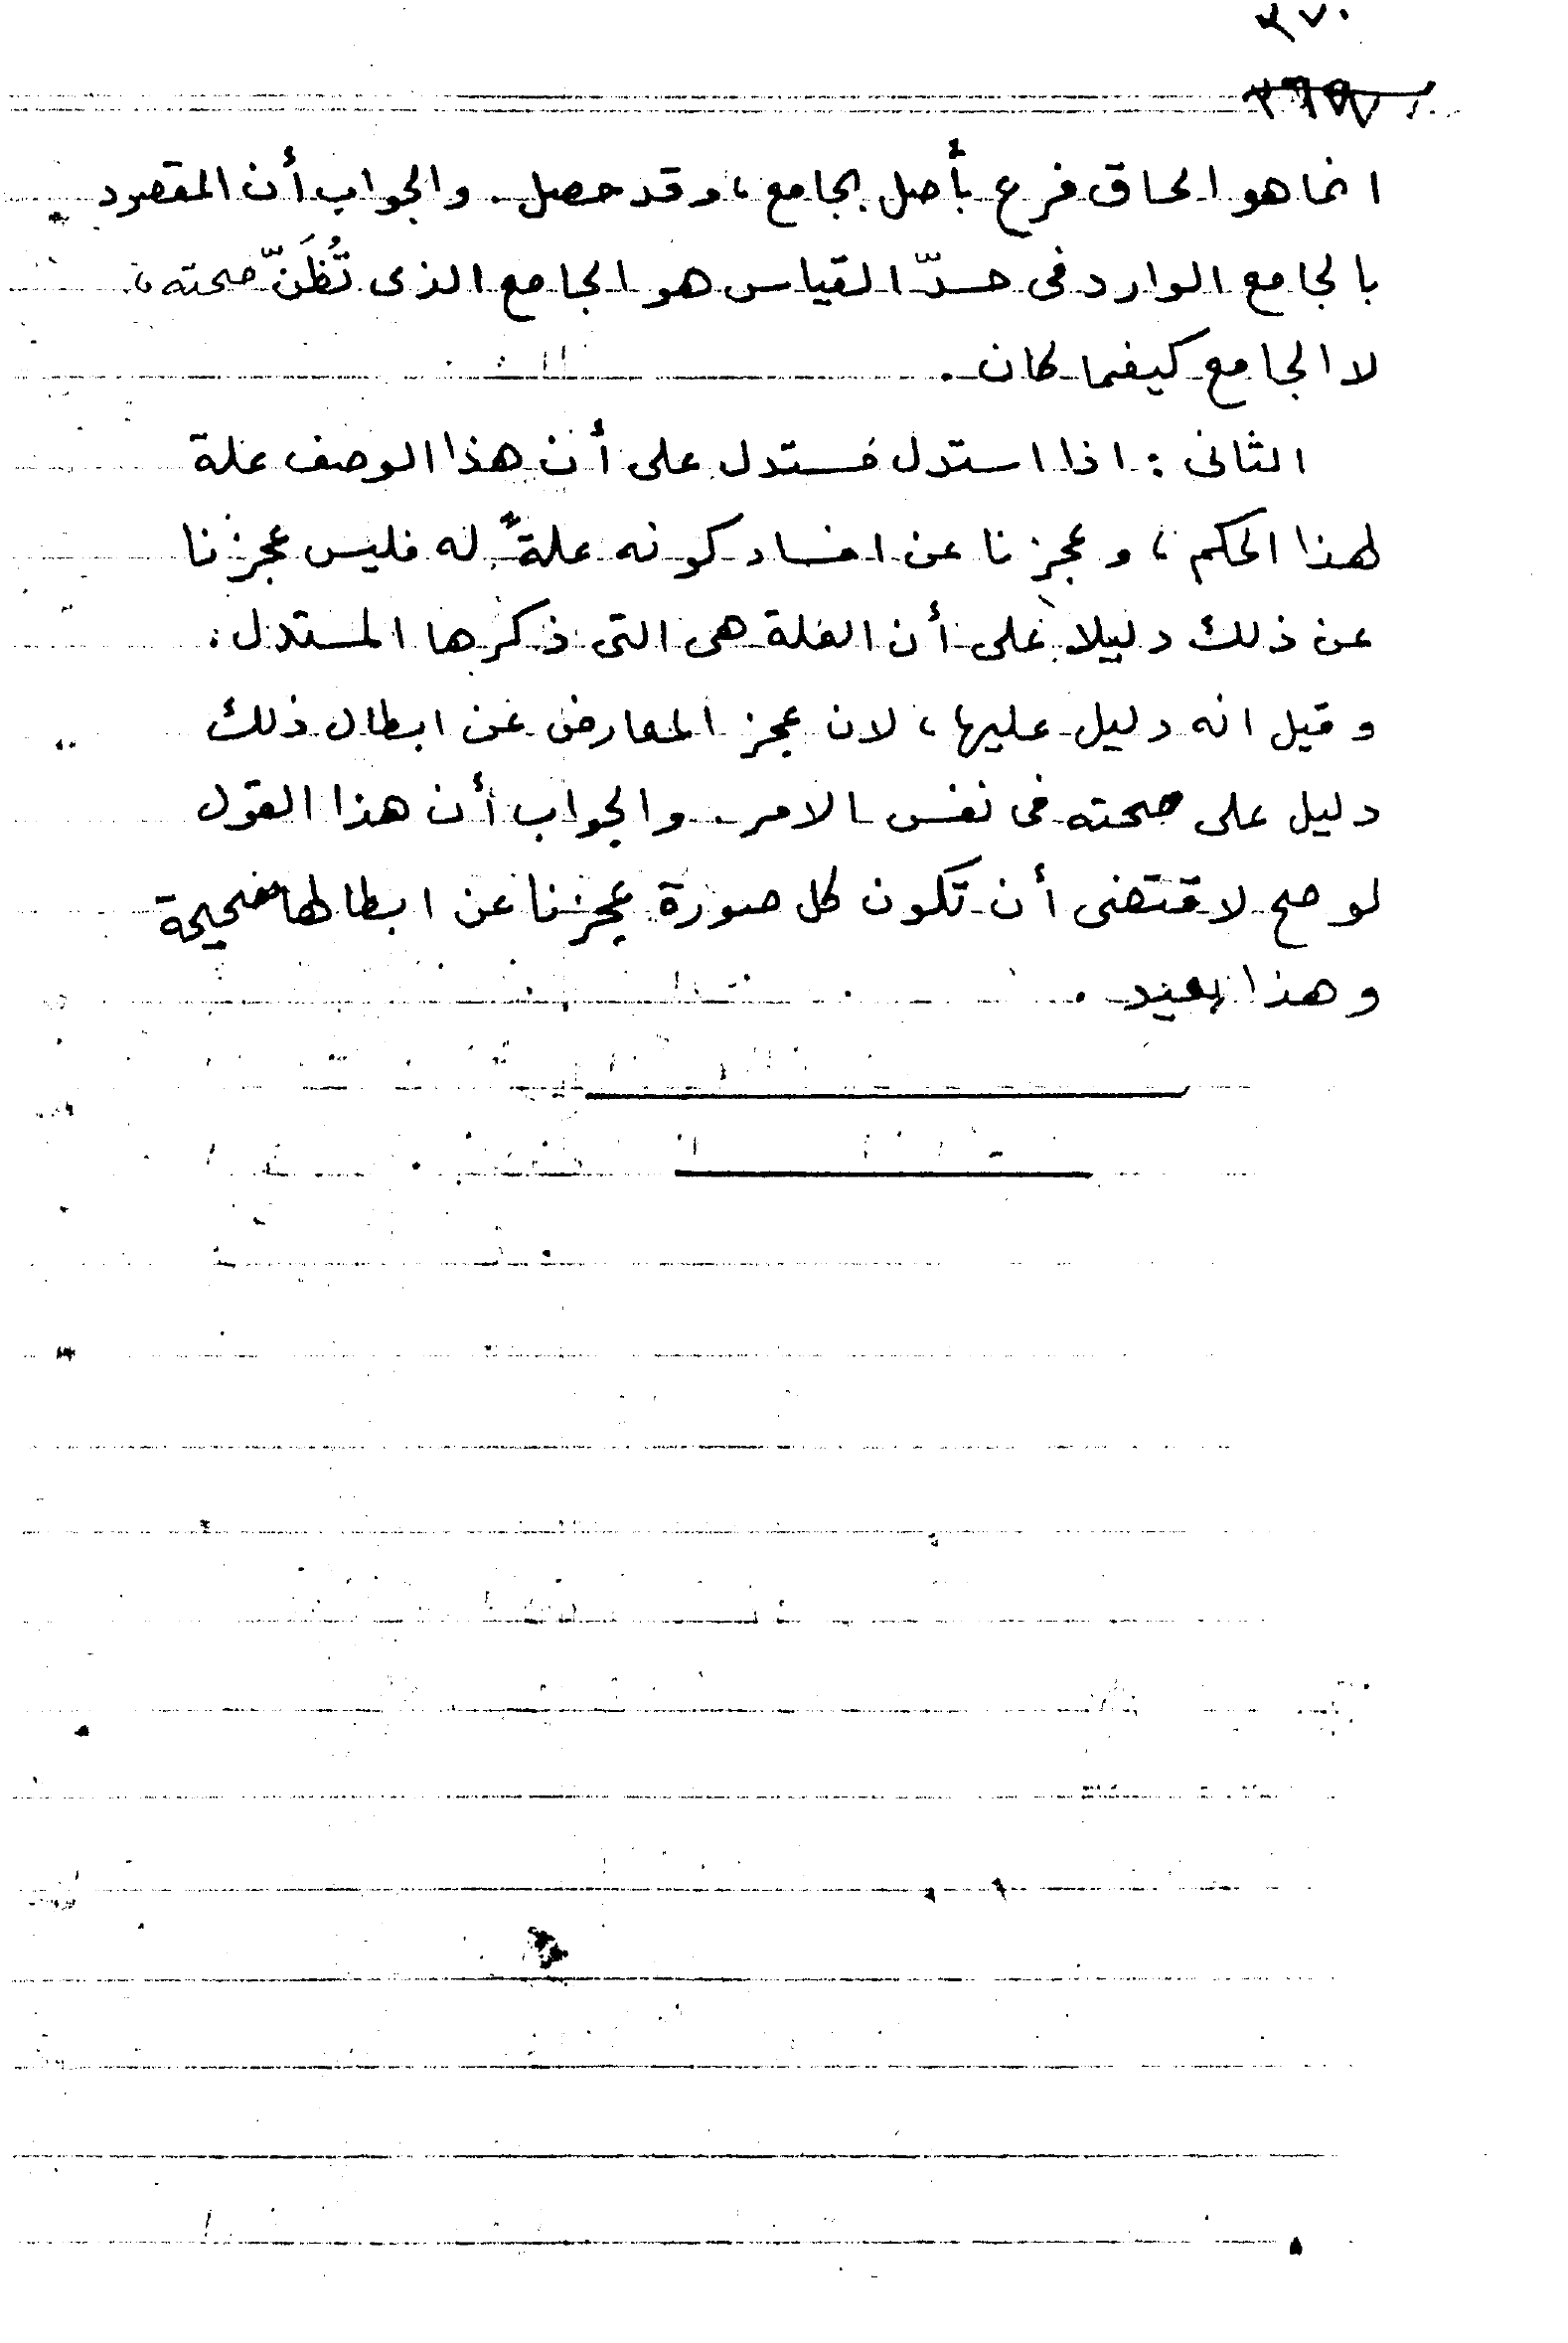 ٣٧٠
انما هو الحاق فرع بأصل بجامع، وقد حصل. والجواب أن المقصود
بالجامع الوارد فى حدّ القياس هو الجامع الذى تُظَنّ صحته،
لا الجامع كيفما كان.
الثانى : اذا استدل مستدل على أن هذا الوصف علة
لهذا الحكم، وعجزنا عن افساد كونه علةً له فليس عجزنا
عن ذلك دليلا على أن العلة هى التى ذكرها المستدل.
وقيل انه دليل عليها، لان عجز المعارض عن ابطال ذلك
دليل على صحته فى نفس الامر. والجواب أن هذا القول
لو صح لاقتضى أن تكون كل صورة عجزنا عن ابطالها صحيحة
وهذا بعيد.